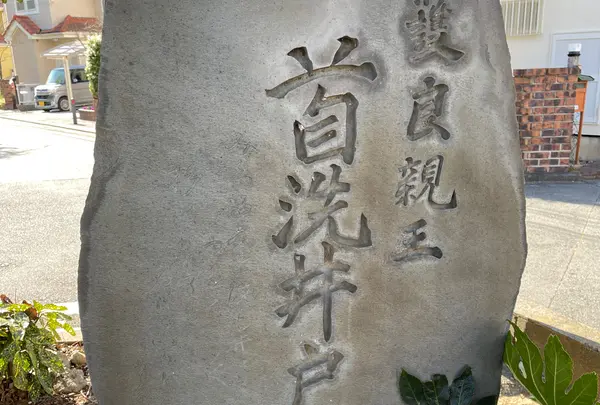 護良親王
首洗井戸